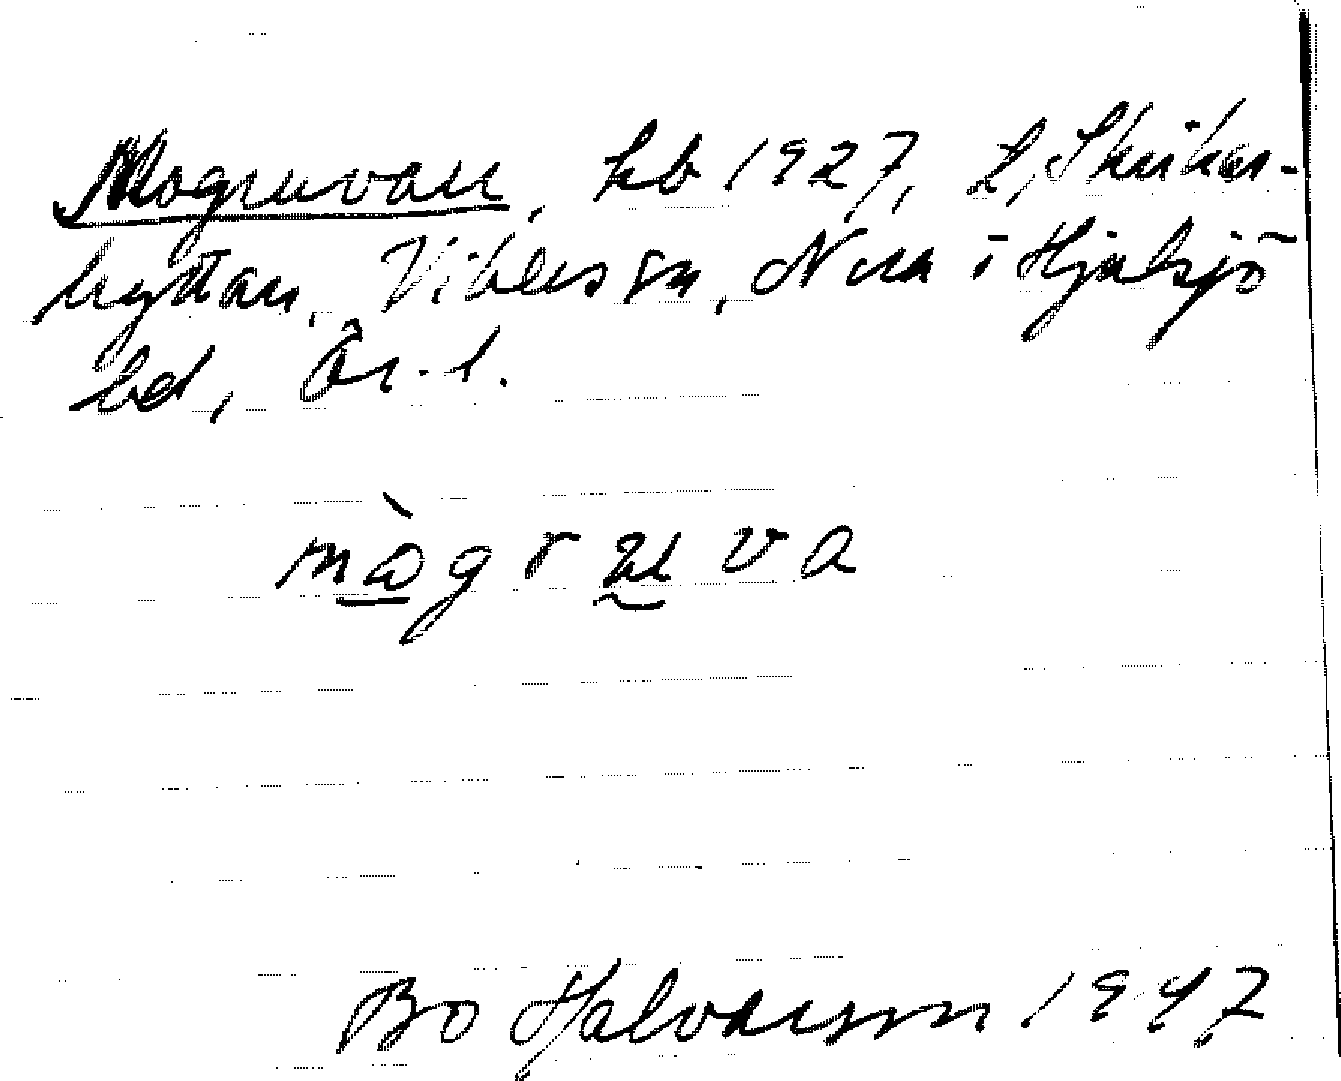 Mogruvan, hb 1927, l, Skrikar-
hyttan, Vikers sn, Nora i Hjulsjö
bd, Ör. l.
mògruva
Bo Halvarsson 1947